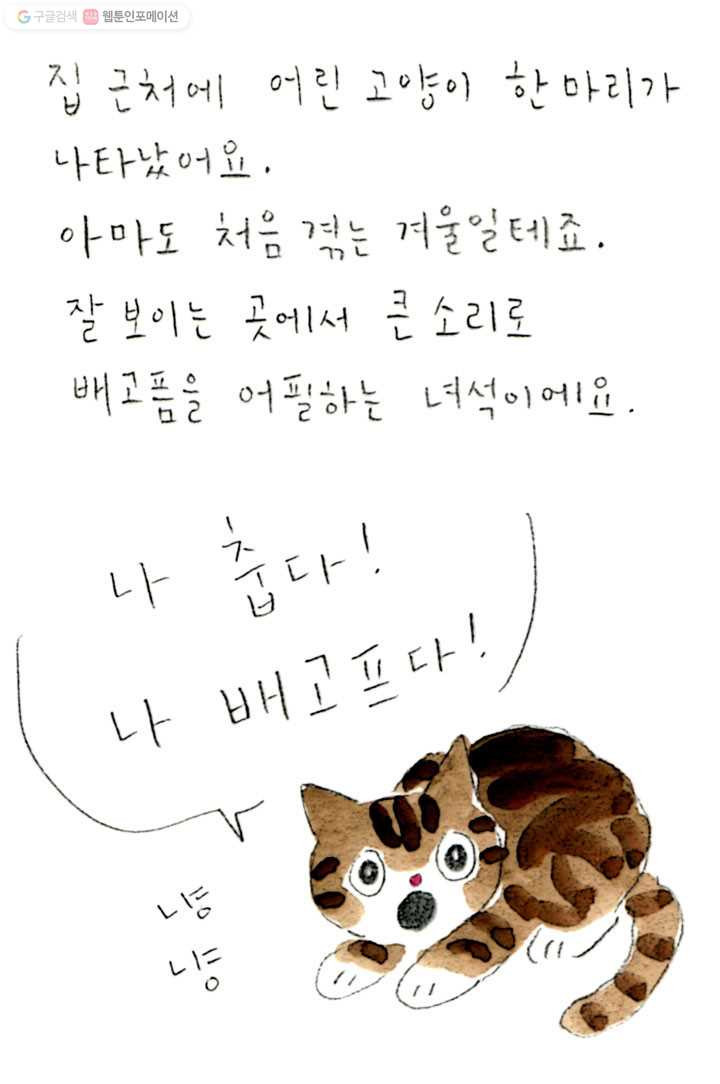 구글검색 웹툰인포메이션
집 근처에 어린 고양이 한마리가
나타났어요.
아마도 처음 겪는 겨울일테죠.
잘 보이는 곳에서 큰 소리로
배고픔을 어필하는 녀석이에요.
나 춥다!
나 배고프다!
냥
냥